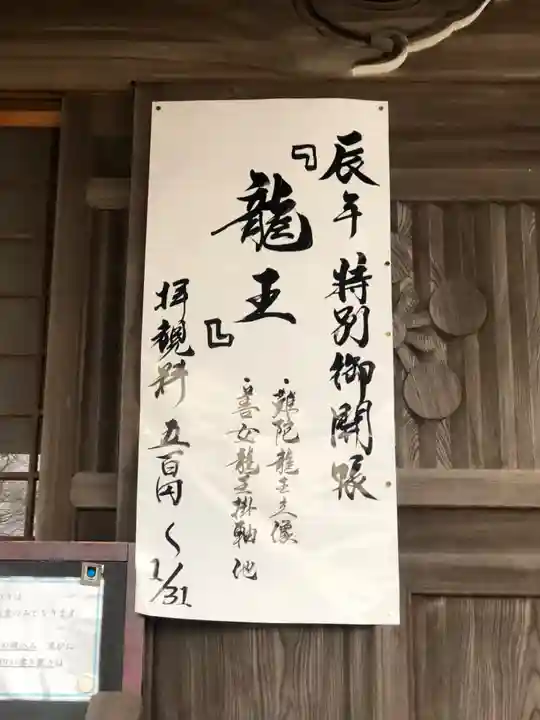 辰年 特別御開帳
『龍王』
・難陀龍王立像
・善女龍王掛軸 他
拝観料 五百円 〜1/31